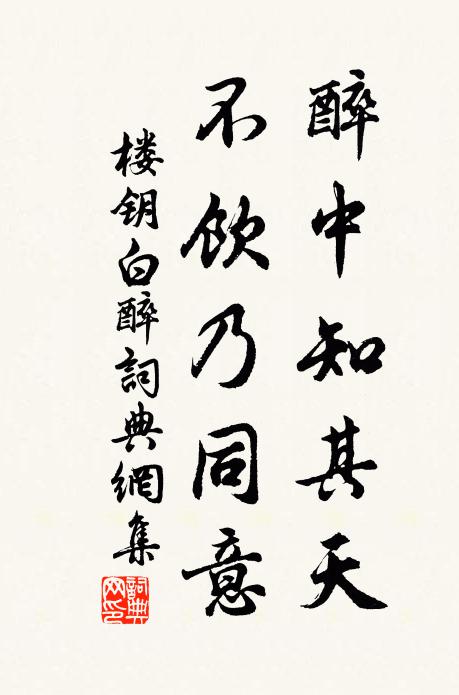 醉中知其天
不飲乃同意
楼钥白醉詞典網集
詞典網印